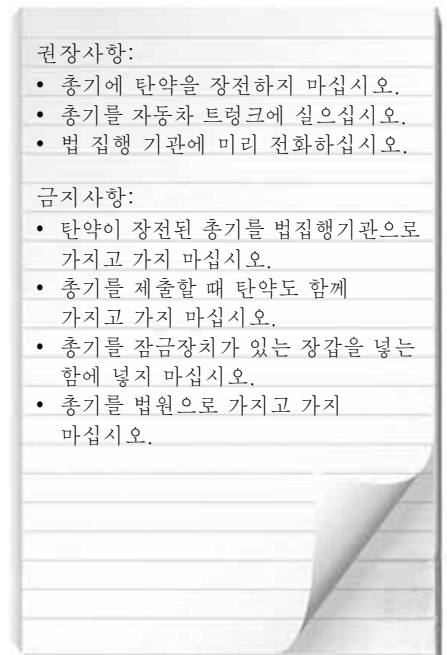 권장사항:
• 총기에 탄약을 장전하지 마십시오.
• 총기를 자동차 트렁크에 실으십시오.
• 법 집행 기관에 미리 전화하십시오.
금지사항:
• 탄약이 장전된 총기를 법집행기관으로
가지고 가지 마십시오.
• 총기를 제출할 때 탄약도 함께
가지고 가지 마십시오.
• 총기를 잠금장치가 있는 장갑을 넣는
함에 넣지 마십시오.
• 총기를 법원으로 가지고 가지
마십시오.